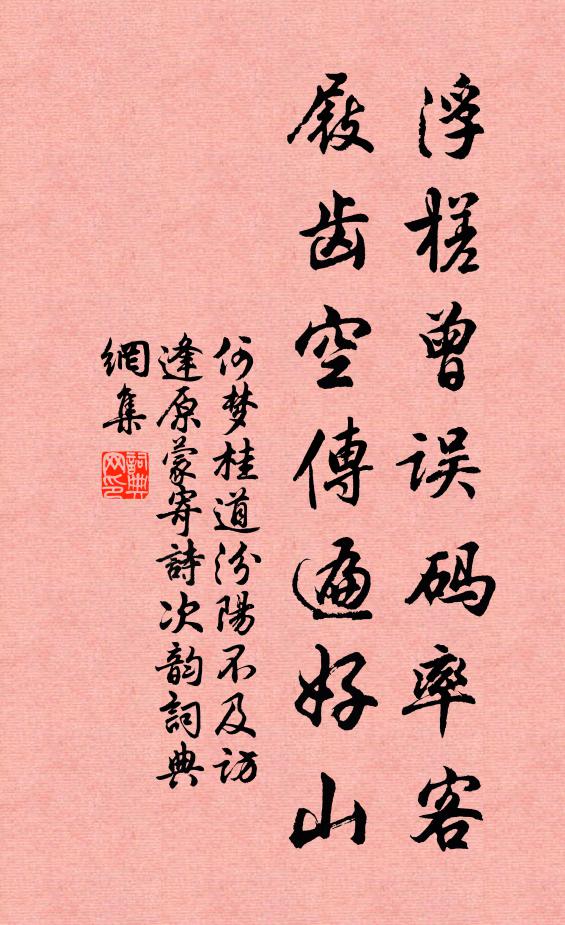 浮槎曾误码率客
屐齿空傳遍好山
何梦桂道汾陽不及访
逢原蒙寄詩次韵詞典
網集
詞典网印